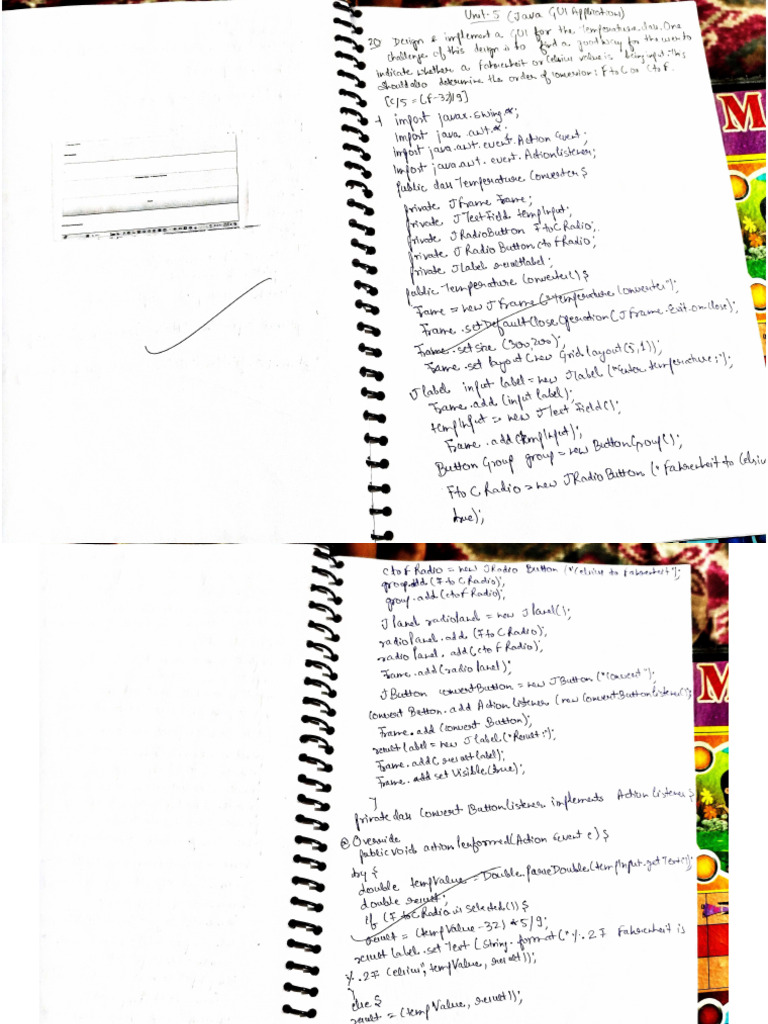 Unit-5 (Java GUI Application)
20 Design & implement a GUI for the Temperature class. One
challenge of this design is to find a good way for the user to
indicate whether a Fahrenheit or Celsius value is being input. This
should also determine the order of conversion: F to C or C to F.
[C/5 = (F-32)/9]
import javax.swing.*;
import java.awt.*;
import java.awt.event.Action Event;
import java.awt.event.ActionListener;
public class Temperature Converter {
private JFrame Frame;
private JTextField tempInput;
private JRadioButton FtoCRadio;
private JRadio Button ctofRadio;
private JLabel resultlabel;
public Temperature Converter() {
Frame = new JFrame ("Temperature Converter");
Frame.setDefaultCloseOperation(JFrame.Exit.on.close);
Frame.setsize (300,200);
Frame.set layout (new Grid layout(5,1));
Jlabel input label = new Jlabel ("Enter temperature:");
Frame.add (input label);
tempInput = new JText Field();
Frame.add(tempInput);
Button Group group = new ButtonGroup();
FtoC Radio = new JRadioButton ("Fahrenheit to Celsiu
true);
ctof Radio = new JRadio Button ("Celsius to Fahrenheit");
group.add (F to C Radio);
group.add (ctof Radio);
J panel radiopanel = new J panel();
radiopanel.add (F to C Radio);
radio panel.add(c to F Radio);
Frame.add(radio panel);
JButton convertButton = new JButton ("convert");
convert Button.add Action listener (new ConvertButtonlistener());
Frame.add (convert Button);
result label = new Jlabel("Result:");
Frame.add( resultlabel);
Frame.add set Visible(true);
}
private class Convert ButtonListener implements Action listener {
@Override
public void action Performed(Action Event e) {
try {
double tempValue = Double.parseDouble(tempInput.get Text());
double result;
if (F to C Radio is selected()) {
result = (tempValue-32) *5/9;
result label.set Text (String.format("%.2f Fahrenheit is
%.2f Celsius", tempValue, result));
}
else {
result = (temp Value, result));